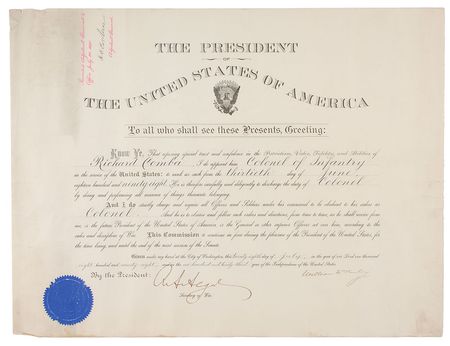 THE PRESIDENT
OF
THE UNITED STATES OF AMERICA
To all who shall see these Presents, Greeting:
Know Ye, That reposing special trust and confidence in the Patriotism, Valor, Fidelity and Abilities of
Richard Comba, I do appoint him Colonel of Infantry
in the service of the United States: to rank as such from the thirtieth day of June
eighteen hundred and ninety eight. He is therefore carefully and diligently to discharge the duty of Colonel
by doing and performing all manner of things thereunto belonging.
And I do strictly charge and require all Officers and Soldiers under his command to be obedient to his orders as
Colonel. And he is to observe and follow such orders and directions, from time to time, as he shall receive from
me, or the future President of the United States of America, or the General or other superior Officers set over him, according to the
rules and discipline of War. This Commission to continue in force during the pleasure of the President of the United States, for
the time being, and until the end of the next session of the Senate.
Given under my hand at the City of Washington, this day of July, in the year of our Lord one thousand
eight hundred and ninety eight, and in the one hundred and twenty third year of the Independence of the United States.
By the President:
Secretary of War.